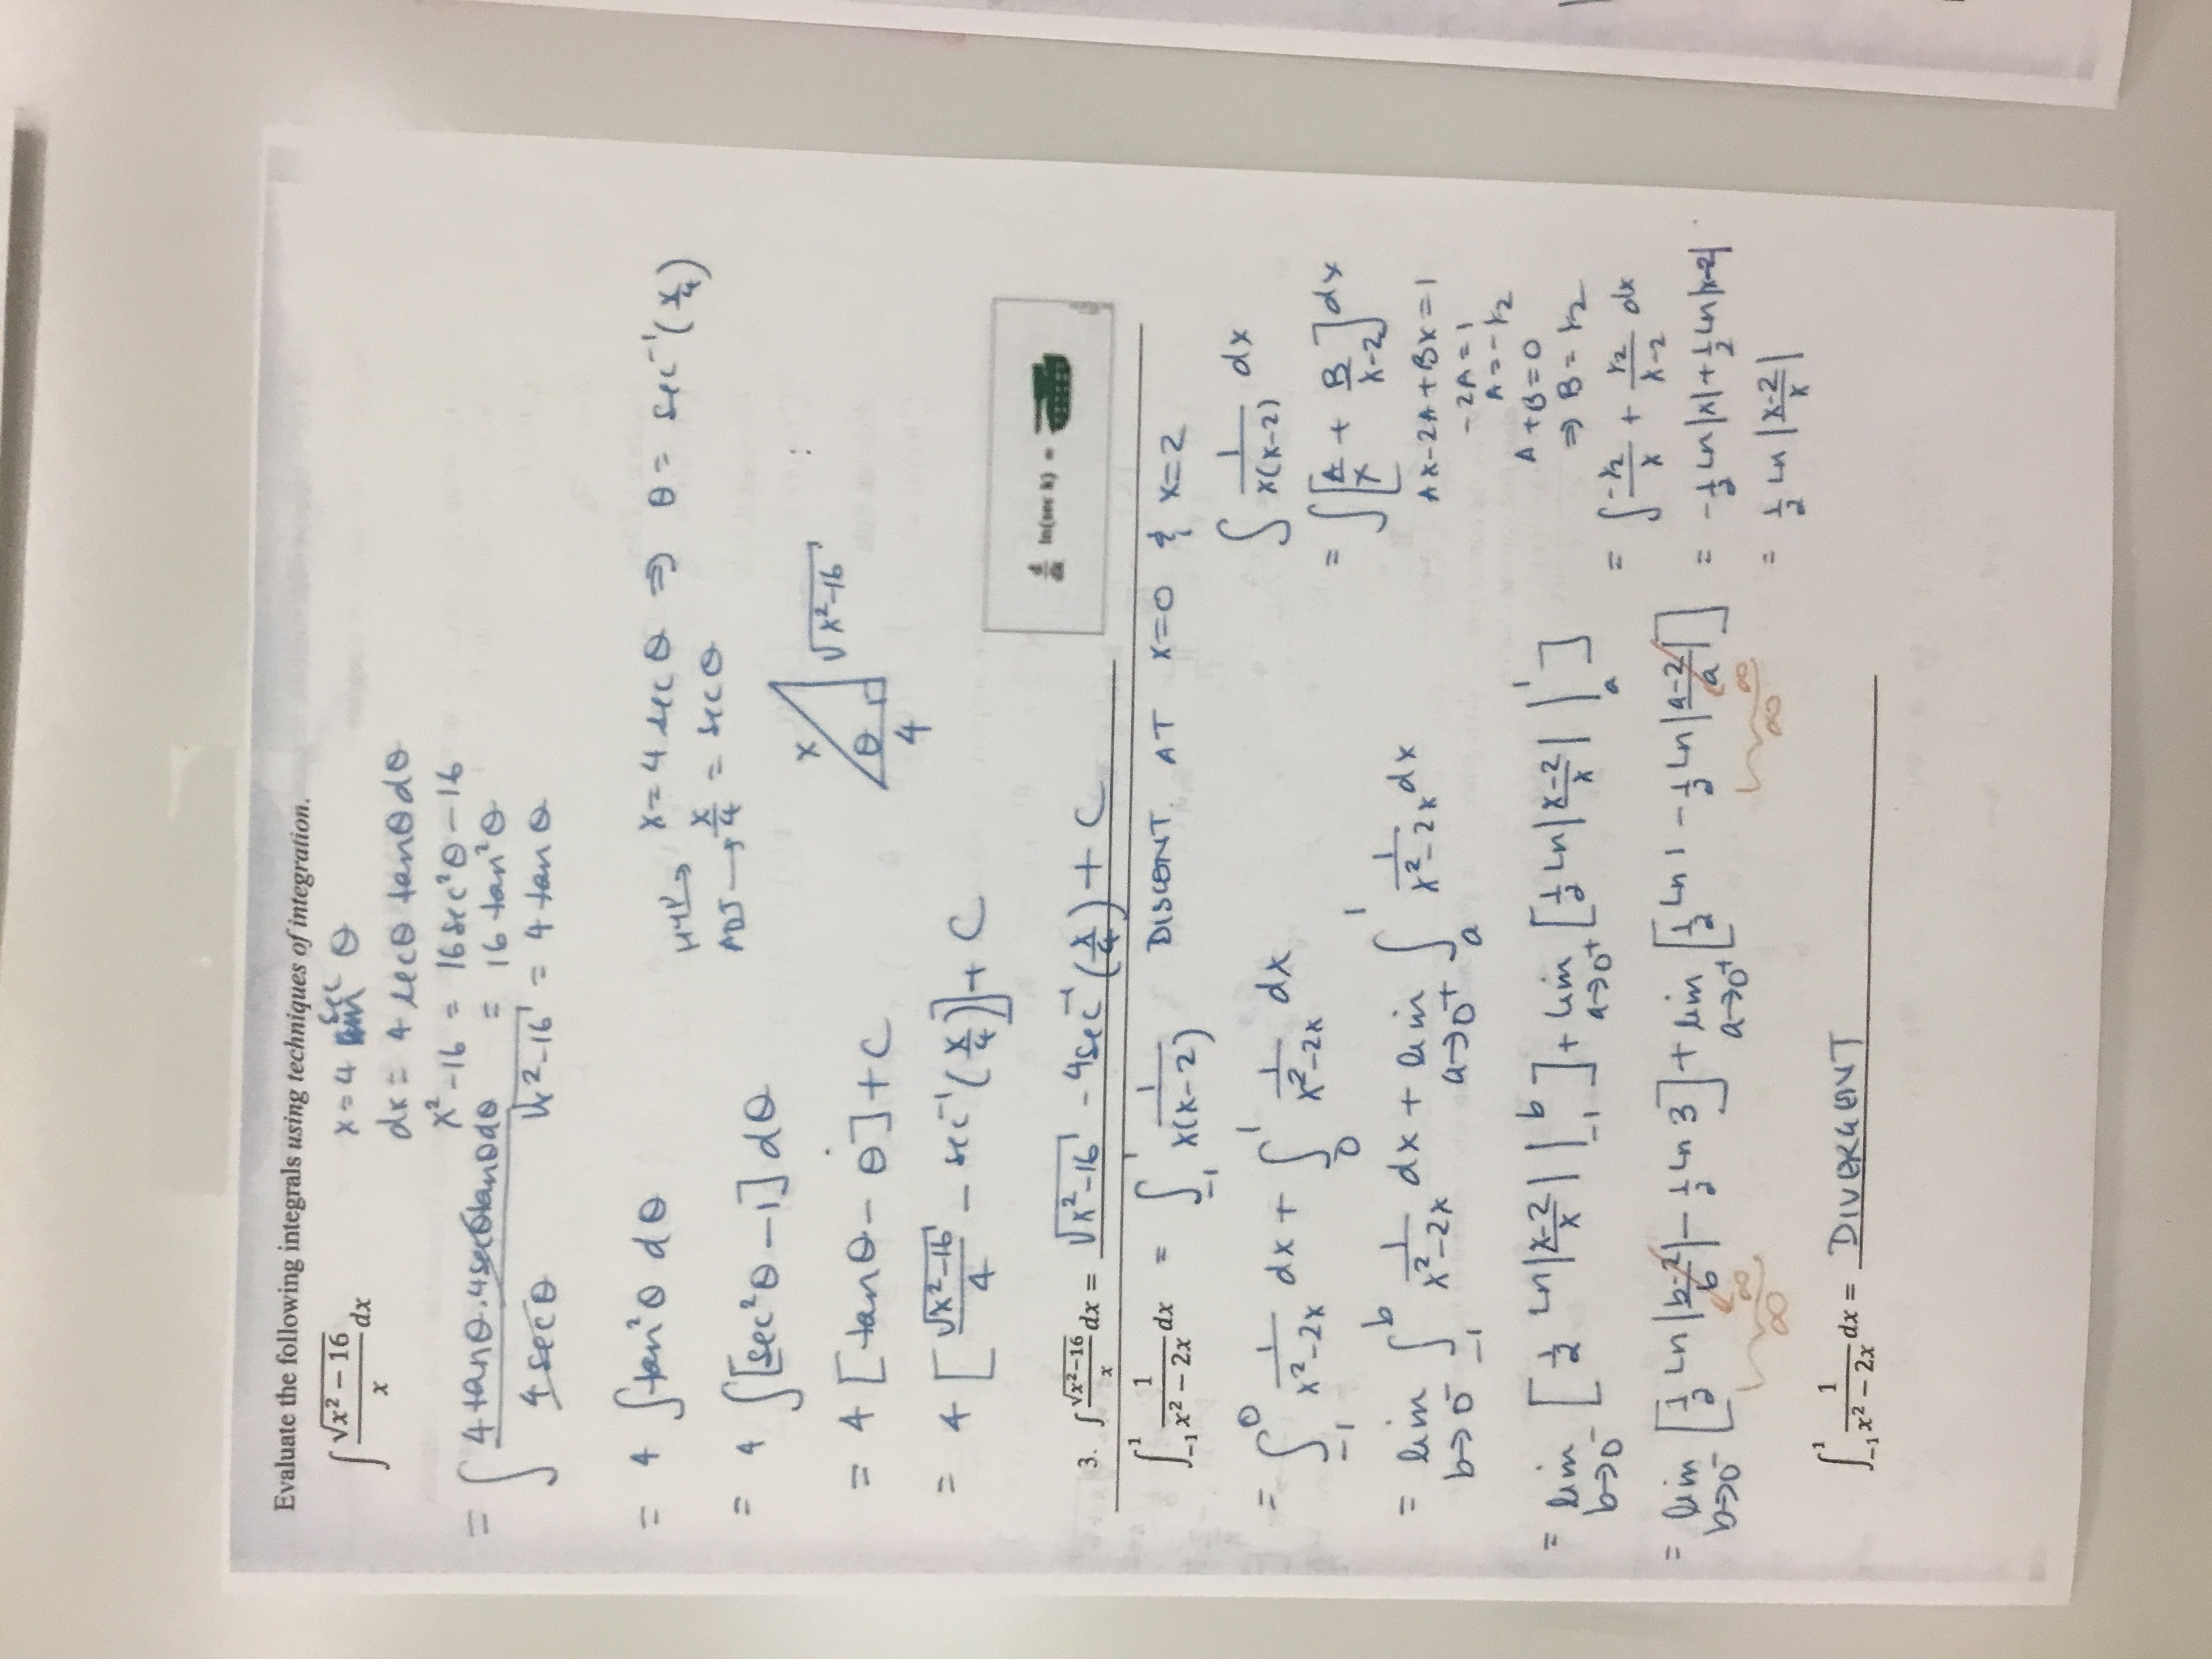 Evaluate the following integrals using techniques of integration.
∫ √(x² − 16) / x dx
x = 4 sec θ
dx = 4 secθ tanθ dθ
x² − 16 = 16 sec²θ − 16
= 16 tan²θ
√(x² − 16) = 4 tan θ
= ∫ 4 tanθ · 4 secθ tanθ dθ / 4 secθ
= 4 ∫ tan²θ dθ
x = 4 sec θ ⇒ θ = sec⁻¹(x/4)
HYP → x/4 = sec θ
ADJ →
= 4 ∫ [sec²θ − 1] dθ
x
√(x² − 16)
θ
4
= 4 [tanθ − θ] + C
= 4 [√(x² − 16)/4 − sec⁻¹(x/4)] + C
d/dx ln(sec k) =
3. ∫ √(x²−16)/x dx = √(x² − 16) − 4sec⁻¹(x/4) + C
∫₋₁¹ 1/(x² − 2x) dx = ∫₋₁¹ 1/(x(x−2)) DISCONT. AT x=0 & x=2
= ∫₋₁⁰ 1/(x²−2x) dx + ∫₀¹ 1/(x²−2x) dx
= lim b→0⁻ ∫₋₁ᵇ 1/(x²−2x) dx + lim a→0⁺ ∫ₐ¹ 1/(x²−2x) dx
= lim b→0⁻ [½ Ln|(x−2)/x| |₋₁ᵇ] + lim a→0⁺ [½ Ln|(x−2)/x| |ₐ¹]
= lim b→0⁻ [½ Ln|(b−2)/b| − ½ Ln 3] + lim a→0⁺ [½ Ln 1 − ½ Ln|(a−2)/a|]
∞ ∞
∞ ∞
∫ 1/(x(x−2)) dx
= ∫ [A/x + B/(x−2)] dx
Ax − 2A + Bx = 1
−2A = 1
A = −½
A + B = 0
⇒ B = ½
= ∫ −½/x + ½/(x−2) dx
= −½ Ln|x| + ½ Ln|x−2|
= ½ Ln|(x−2)/x|
∫₋₁¹ 1/(x² − 2x) dx = DIVERGENT